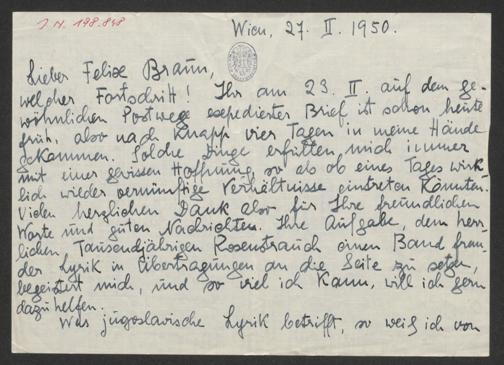 J.N. 198.848
Wien, 27. II. 1950.
Lieber Felix Braun,
welcher Fortschritt! Ihr am 23. II. auf dem ge-
wöhnlichen Postwege expedierter Brief ist schon heute
früh, also nach knapp vier Tagen in meine Hände
gekommen. Solche Dinge erfüllen mich immer
mit einer gewissen Hoffnung, so als ob eines Tages wirk-
lich wieder vernünftige Verhältnisse eintreten könnten.
Vielen herzlichen Dank also für Ihre freundlichen
Worte und guten Nachrichten. Ihre Aufgabe, dem herr-
lichen Tausendjährigen Rosenstrauch einen Band frem-
der Lyrik in Übertragungen an die Seite zu setzen,
begeistert mich, und so viel ich kann, will ich gern
dazu helfen.
Was jugoslavische Lyrik betrifft, so weiß ich von